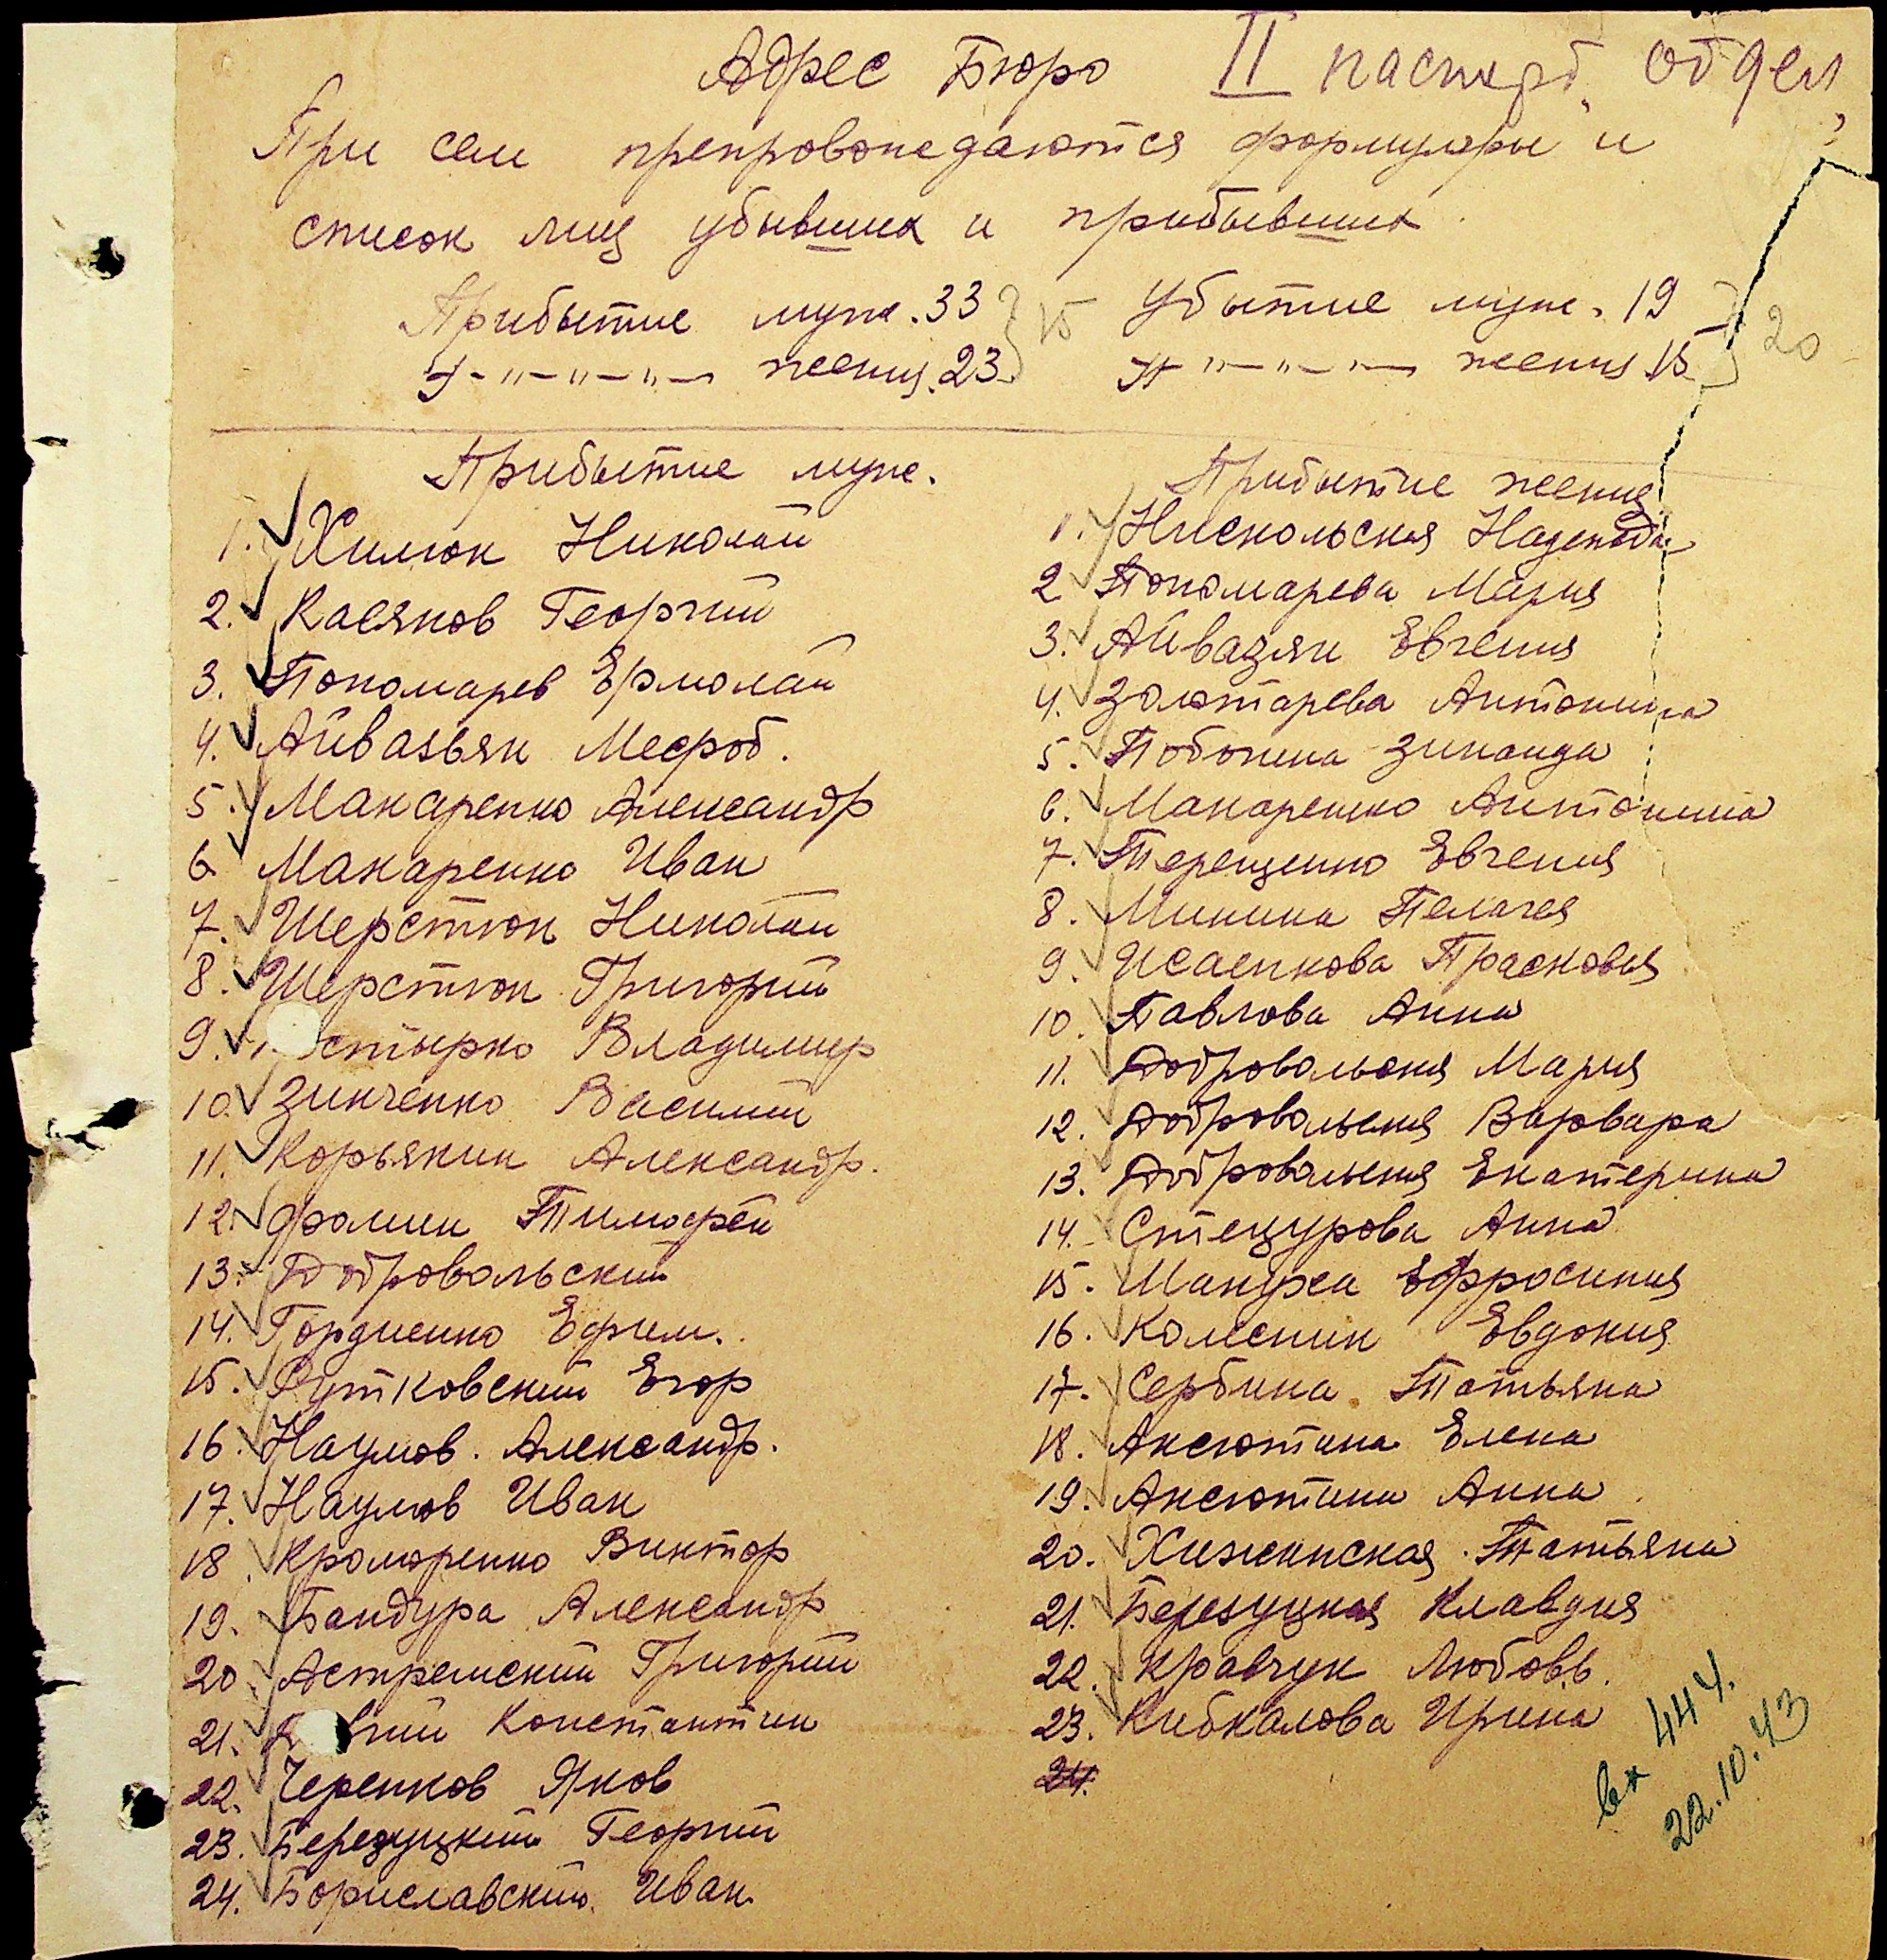 Адрес Бюро II паспорт. отдел
При сем препровождаются формуляры и
список лиц убывших и прибывших.
Прибытие муж. 33 15 Убытие муж. 19 20
-"-"-"- женщ. 23 -"-"-"- женщ. 15
Прибытие муж.
1. Хилюк Николай
2. Касянов Георгий
3. Пономарев Ермолай
4. Айвазьян Месроб.
5. Макаренко Александр
6 Макаренко Иван
7. Шерстюк Николай
8. Шерстюк Григорий
9. стырко Владимир
10. Зинченко Василий
11. Корьякин Александр.
12. Фомин Тимофей
13. Добровольский
14. Гордиенко Ефим.
15. Рутковский Егор
16. Наумов. Александр.
17. Наумов Иван
18. Кромаренко Виктор
19. Бандура Александр
20 Астремский Григорий
21. Константин
22. Черепков Яков
23. Березуцкий Георгий
24. Бориславский. Иван.
Прибытие женщ
1. Нискольская Надежда
2 Пономарева Мария
3. Айвазян Евгения
4. Золотарева Антонина
5. Побожина Зинаида
6. Макаренко Антонина
7. Терещенко Евгения
8. Минина Пелагея
9. Исаенкова Прасковья
10. Павлова Анна
11. Добровольская Мария
12. Добровольская Варвара
13. Добровольская Екатерина
14. Стецурова Анна
15. Манжеа Ефросиния
16. Колесник Евдокия
17. Сербина Татьяна
18. Аксютина Елена
19. Аксютина Анна
20. Хижинская. Татьяна
21. Березуцкая Клавдия
22. Кравчук Любовь.
23. Кибкалова Ирина
24.
вх 444.
22.10.43